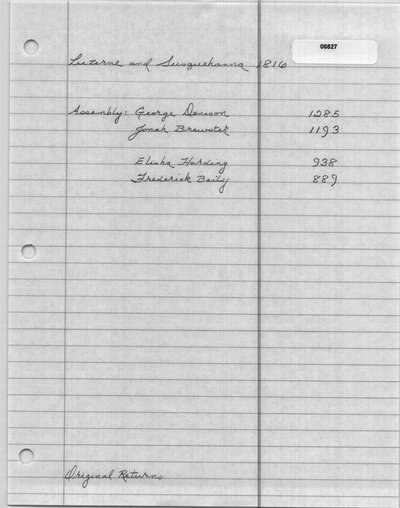 06827
Luzerne and Susquehanna 1816
Assembly: George Denison 1285
Jonah Brewster 1193
Elisha Harding 938
Frederick Baily 889
Original Returns